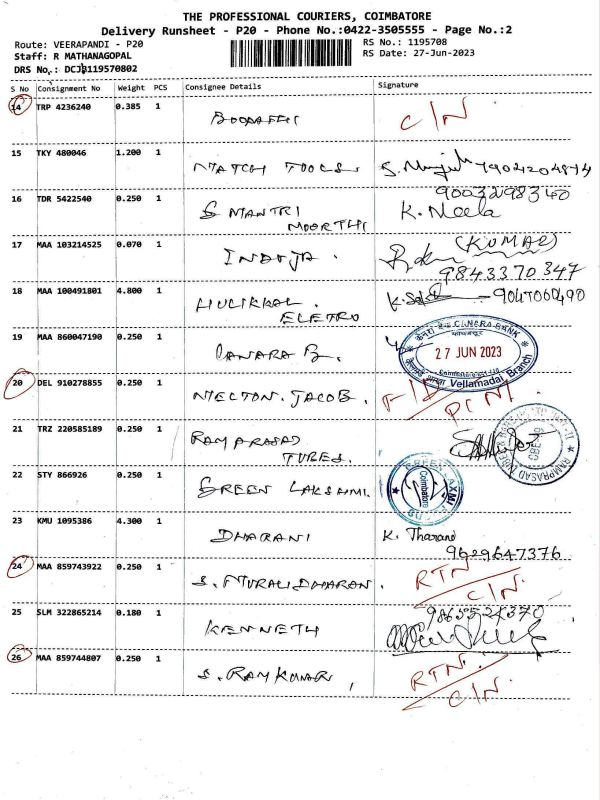 THE PROFESSIONAL COURIERS, COIMBATORE
Delivery Runsheet - P20 - Phone No.:0422-3505555 - Page No.:2
Route: VEERAPANDI - P20
RS No.: 1195708
Staff: R MATHANAGOPAL
RS Date: 27-Jun-2023
DRS No.: DCJB119570802
S No Consignment No Weight PCS Consignee Details Signature
14 TRP 4236240 0.385 1 C/N
15 TKY 480046 1.200 1 MATCH TOOLS.
9003298340
16 TDR 5422540 0.250 1 S MANTRI K. Neela
MOORTHI
17 MAA 103214525 0.070 1 INDUJA. (KUMAR)
9843370347
18 MAA 100491801 4.800 1 HULIKKAL. - 9047000490
ELETRO
CANARA BANK
19 MAA 860047190 0.250 1 CANARA B. 27 JUN 2023
Vellamadai Branch
20 DEL 910278855 0.250 1 NELTON. JACOB.
21 TRZ 220585189 0.250 1 RAMPRASAD
TUBES.
22 STY 866926 0.250 1 GREEN LAKSHMI. Coimbatore
23 KMU 1095386 4.300 1 DHARANI K. Tharani
9629647376
24 MAA 859743922 0.250 1 S. MURALIDHARAN. RTN
C/N.
25 SLM 322865214 0.180 1 KENNETH
26 MAA 859744807 0.250 1 S. RAMKUMAR, RTN.
C/N.